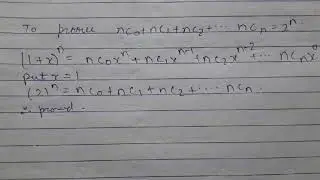 To prove nc₀+nc₁+nc₂+... ncₙ=2ⁿ.
(1+x)ⁿ = nc₀xⁿ+nc₁xⁿ⁻¹+nc₂xⁿ⁻²+... ncₙx⁰
put x=1
(2)ⁿ=nc₀+nc₁+nc₂+.... ncₙ.
∴ proved.